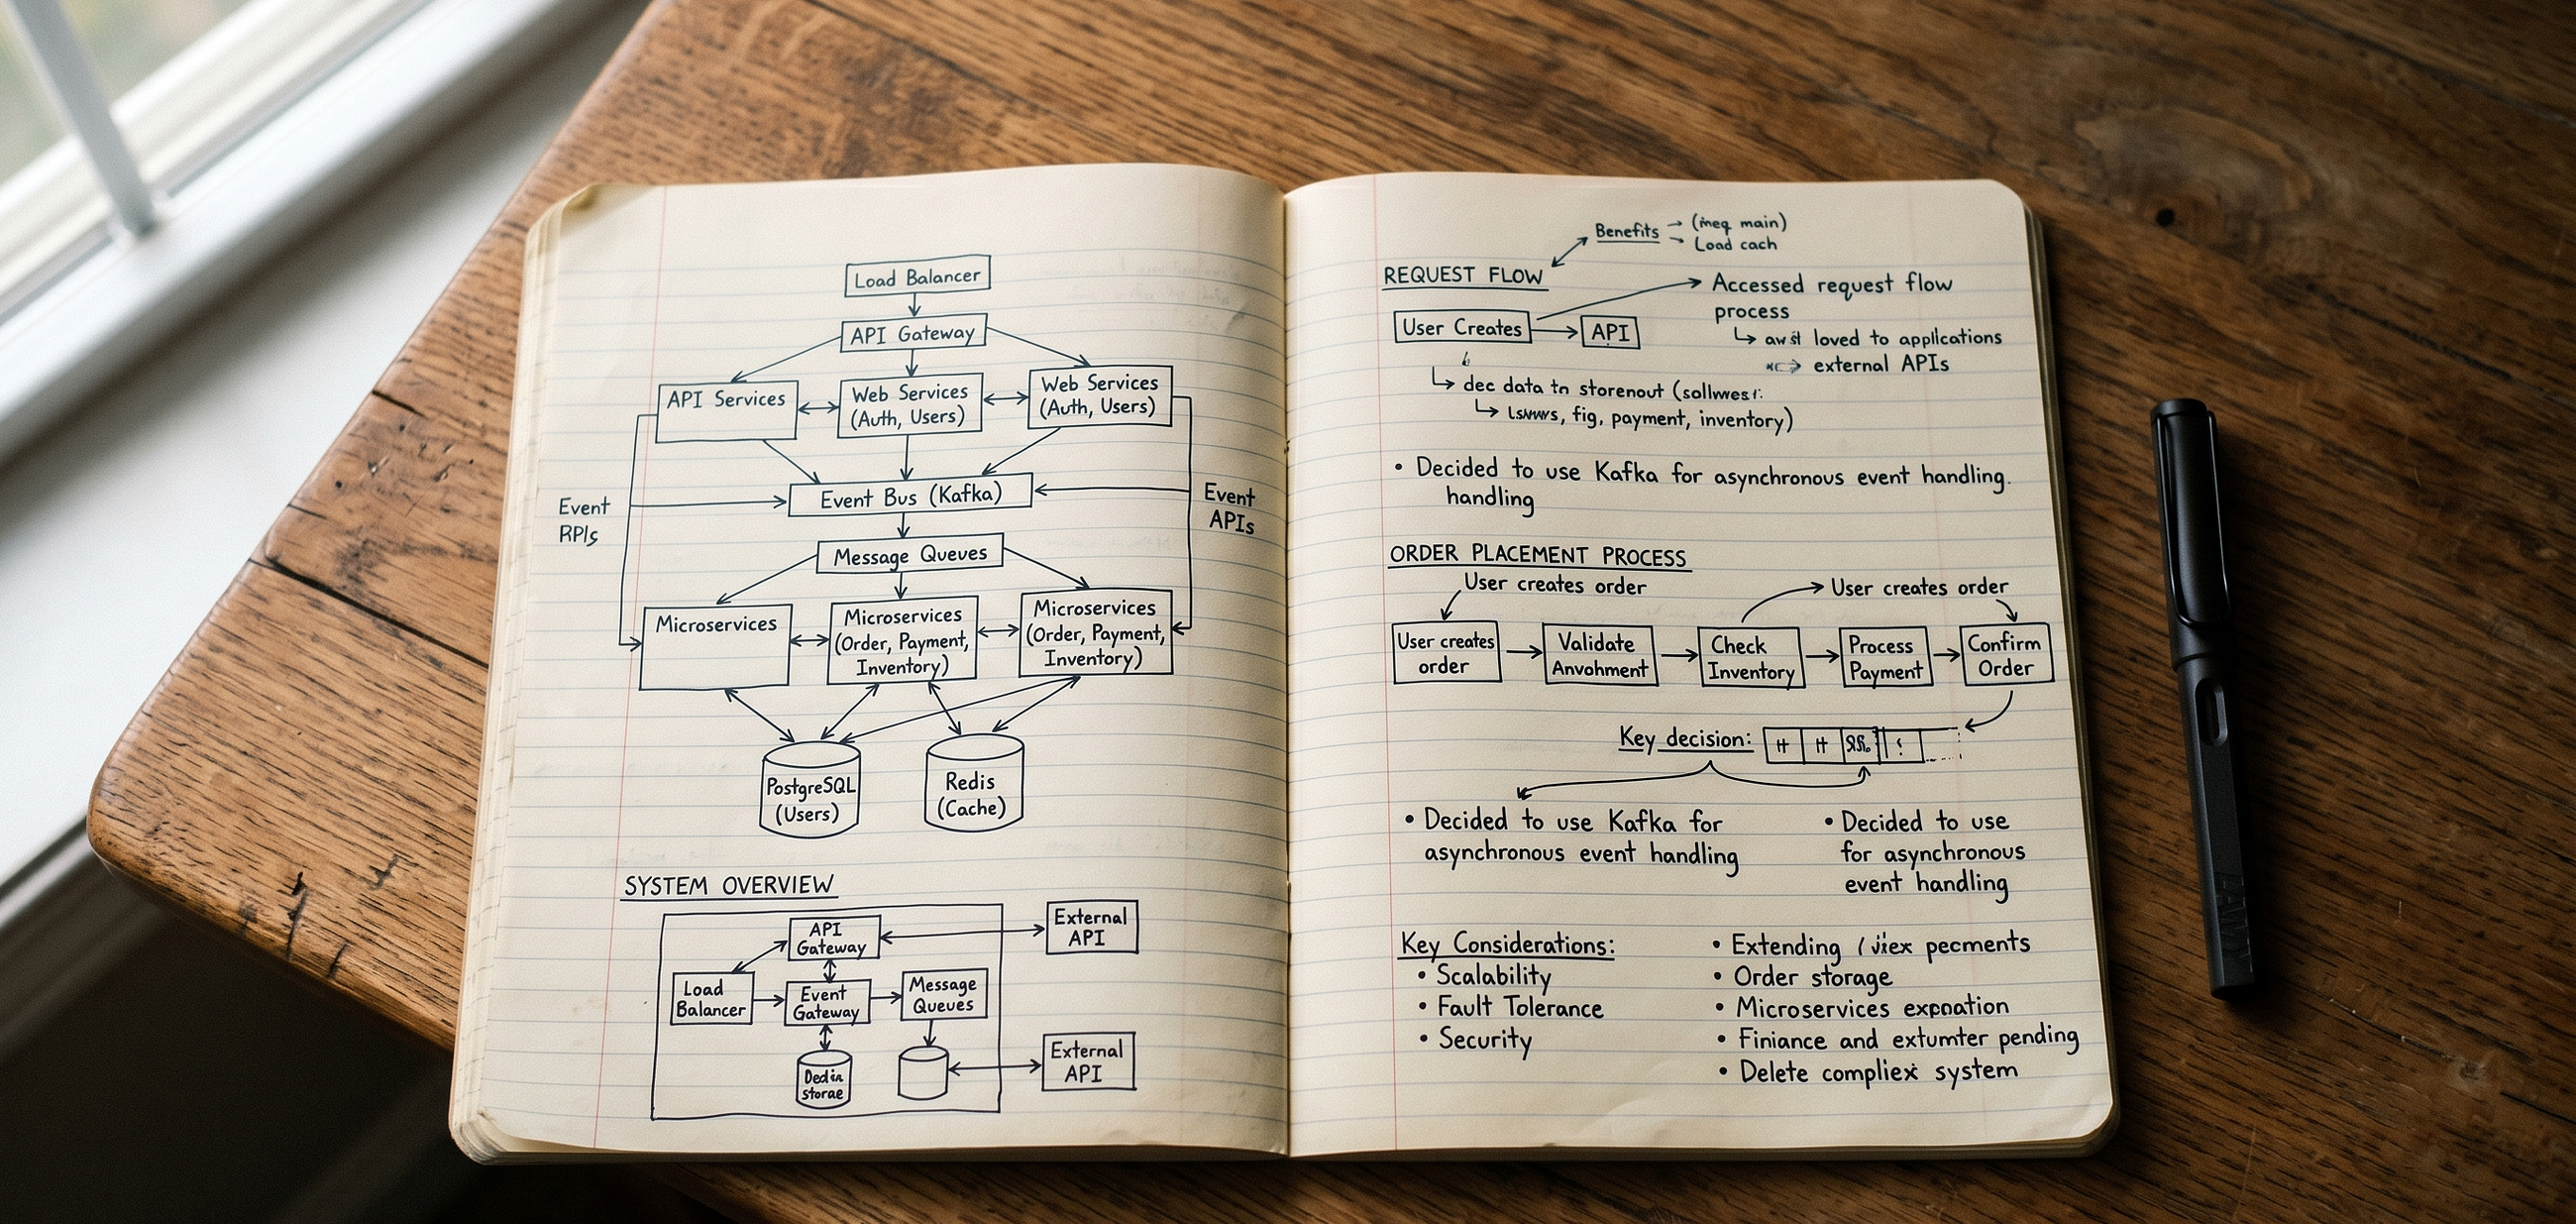 Load Balancer
API Gateway
API Services
Web Services
(Auth, Users)
Web Services
(Auth, Users)
Event
RPIs
Event Bus (Kafka)
Event
APIs
Message Queues
Microservices
Microservices
(Order, Payment,
Inventory)
Microservices
(Order, Payment,
Inventory)
PostgreSQL
(Users)
Redis
(Cache)
SYSTEM OVERVIEW
API
Gateway
External
API
Load
Balancer
Event
Gateway
Message
Queues
External
API
storae
Benefits
main)
Load cach
REQUEST FLOW
Accessed request flow
process
User Creates
API
loved to applications
external APIs
dec data tn storenout
fig, payment, inventory)
• Decided to use Kafka for asynchronous event handling.
handling
ORDER PLACEMENT PROCESS
User creates order
User creates order
User creates
order
Validate
Anvohment
Check
Inventory
Process
Payment
Confirm
Order
Key decision:
• Decided to use Kafka for
asynchronous event handling
• Decided to use
for asynchronous
event handling
Key Considerations:
• Scalability
• Fault Tolerance
• Security
• Extending pecments
• Order storage
• Microservices
• Finiance and extumter pending
• Delete compliex system
LAMY